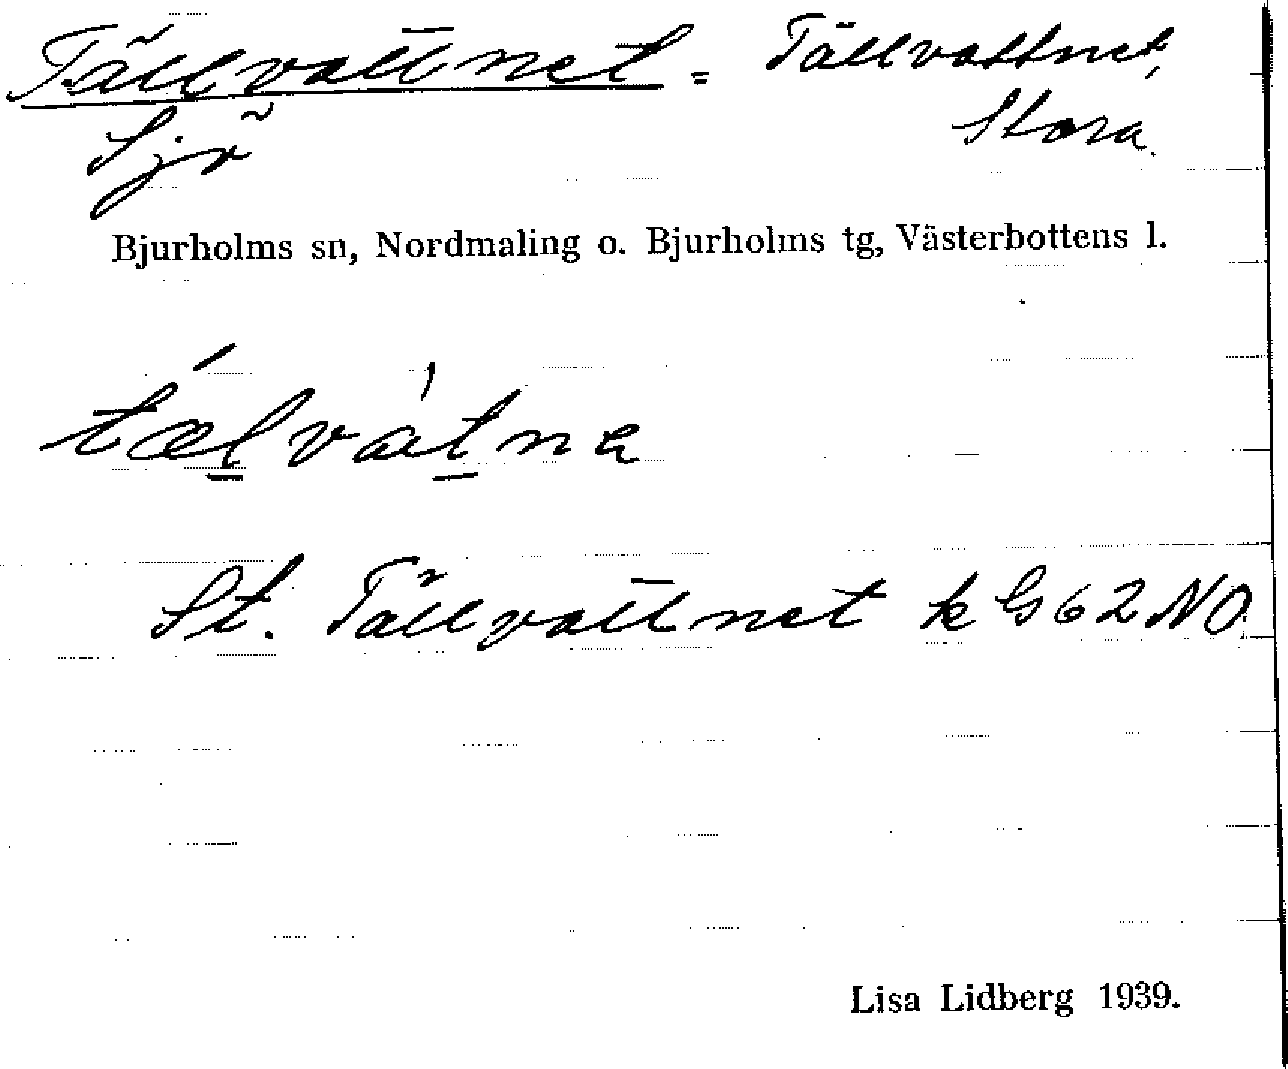 Tällvattnet = Tällvattnet,
Sjö Stora.
Bjurholms sn, Nordmaling o. Bjurholms tg, Västerbottens l.
tælvátna
St. Tällvattnet k G62NO
Lisa Lidberg 1939.